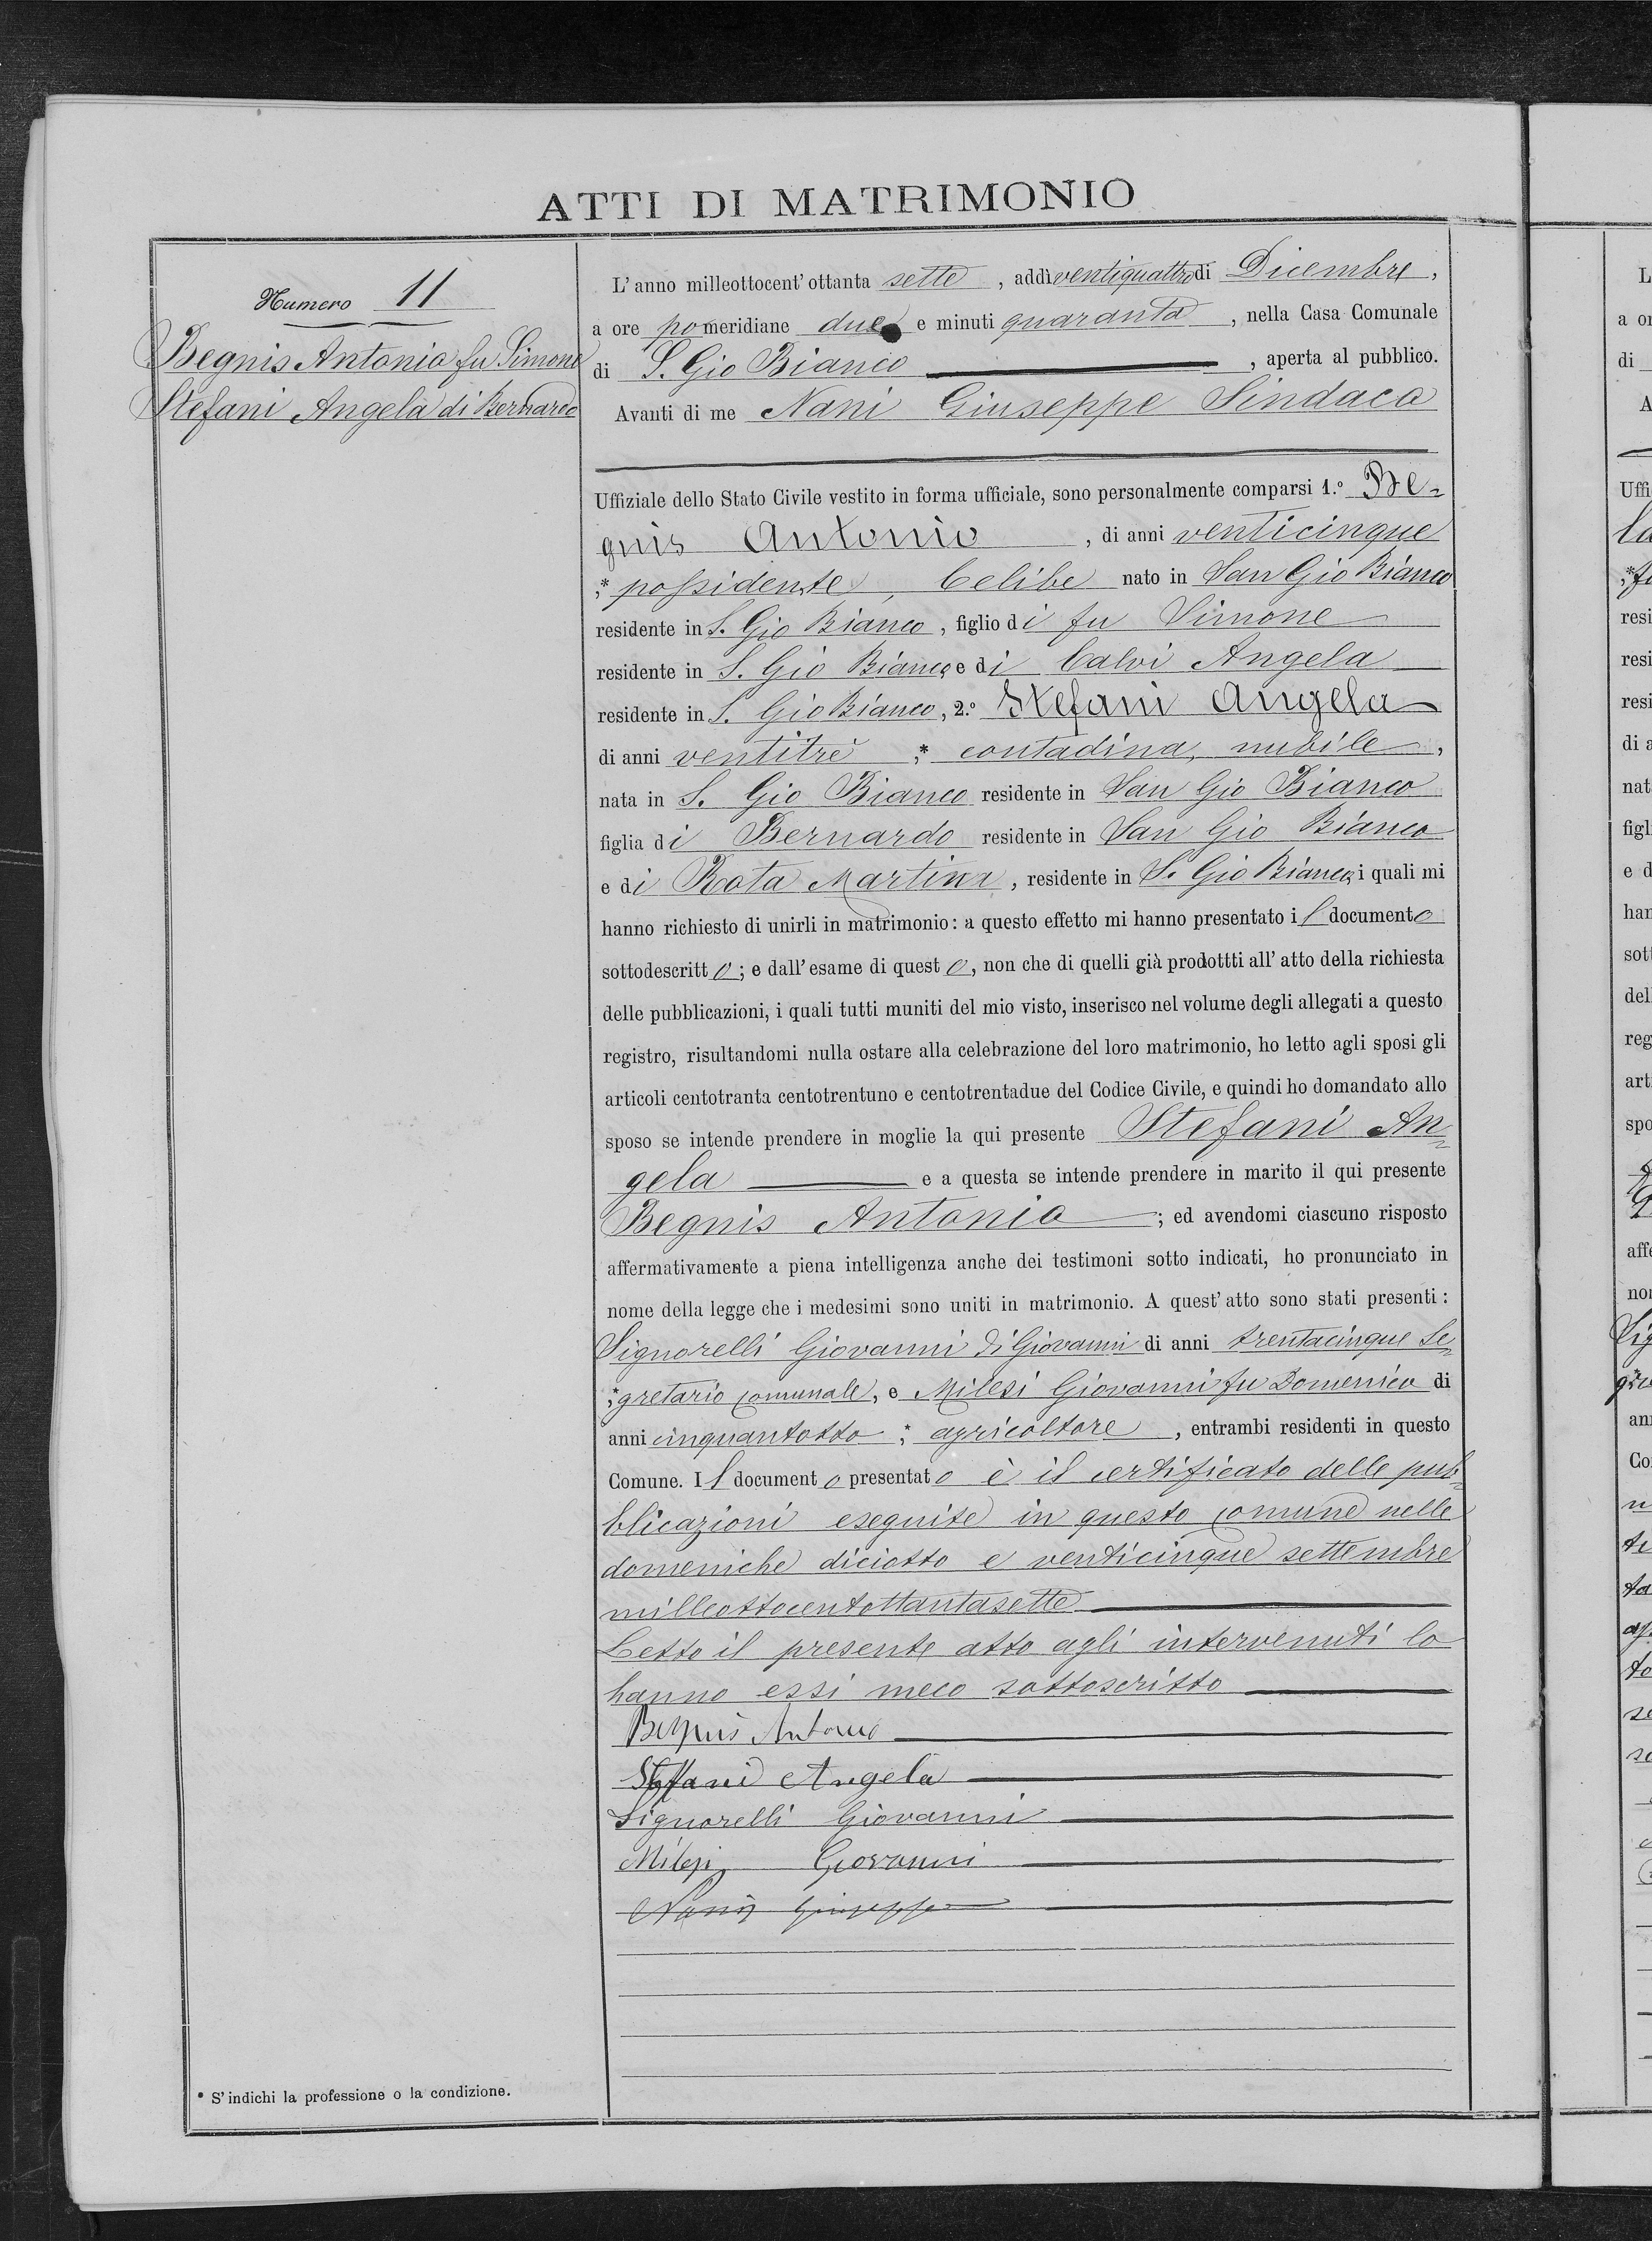 ATTI DI MATRIMONIO
Numero 11
Begnis Antonio fu Simone
Stefani Angela di Bernardo
L'anno milleottocent'ottanta sette, addì ventiquattro di Dicembre,
a ore pomeridiane due e minuti quaranta, nella Casa Comunale
di S. Gio Bianco, aperta al pubblico.
Avanti di me Nani Giuseppe Sindaco
Uffiziale dello Stato Civile vestito in forma ufficiale, sono personalmente comparsi 1.º Be-
gnis Antonio, di anni venticinque
,* possidente, Celibe nato in San Gio Bianco
residente in S. Gio Bianco, figlio di fu Simone
residente in S. Gio Bianco, e di Calvi Angela
residente in S. Gio Bianco, 2.º Stefani Angela
di anni ventitrè ,* contadina, nubile,
nata in S. Gio Bianco residente in San Gio Bianco
figlia di Bernardo residente in San Gio Bianco
e di Rota Martina, residente in S. Gio Bianco, i quali mi
hanno richiesto di unirli in matrimonio: a questo effetto mi hanno presentato il documento
sottodescritto; e dall'esame di questo, non che di quelli già prodottti all'atto della richiesta
delle pubblicazioni, i quali tutti muniti del mio visto, inserisco nel volume degli allegati a questo
registro, risultandomi nulla ostare alla celebrazione del loro matrimonio, ho letto agli sposi gli
articoli centotranta centotrentuno e centotrentadue del Codice Civile, e quindi ho domandato allo
sposo se intende prendere in moglie la qui presente Stefani An=
gela e a questa se intende prendere in marito il qui presente
Begnis Antonio; ed avendomi ciascuno risposto
affermativamente a piena intelligenza anche dei testimoni sotto indicati, ho pronunciato in
nome della legge che i medesimi sono uniti in matrimonio. A quest'atto sono stati presenti:
Signorelli Giovanni di Giovanni di anni trentacinque Se=
,* gretario comunale, e Milesi Giovanni fu Domenico di
anni cinquantotto ,* agricoltore, entrambi residenti in questo
Comune. Il documento presentato è il certificato delle pub=
blicazioni eseguite in questo comune nelle
domeniche diciotto e venticinque settembre
milleottocentottantasette
Letto il presente atto agli intervenuti lo
hanno essi meco sottoscritto
Begnis Antonio
Steffani Angela
Signorelli Giovanni
Milesi Giovanni
Nani Giuseppe
* S'indichi la professione o la condizione.
L
a or
di
A
Uffi
resi
resi
resi
di a
nat
figl
e d
han
sott
del
reg
art
spo
affe
nor
ann
Co